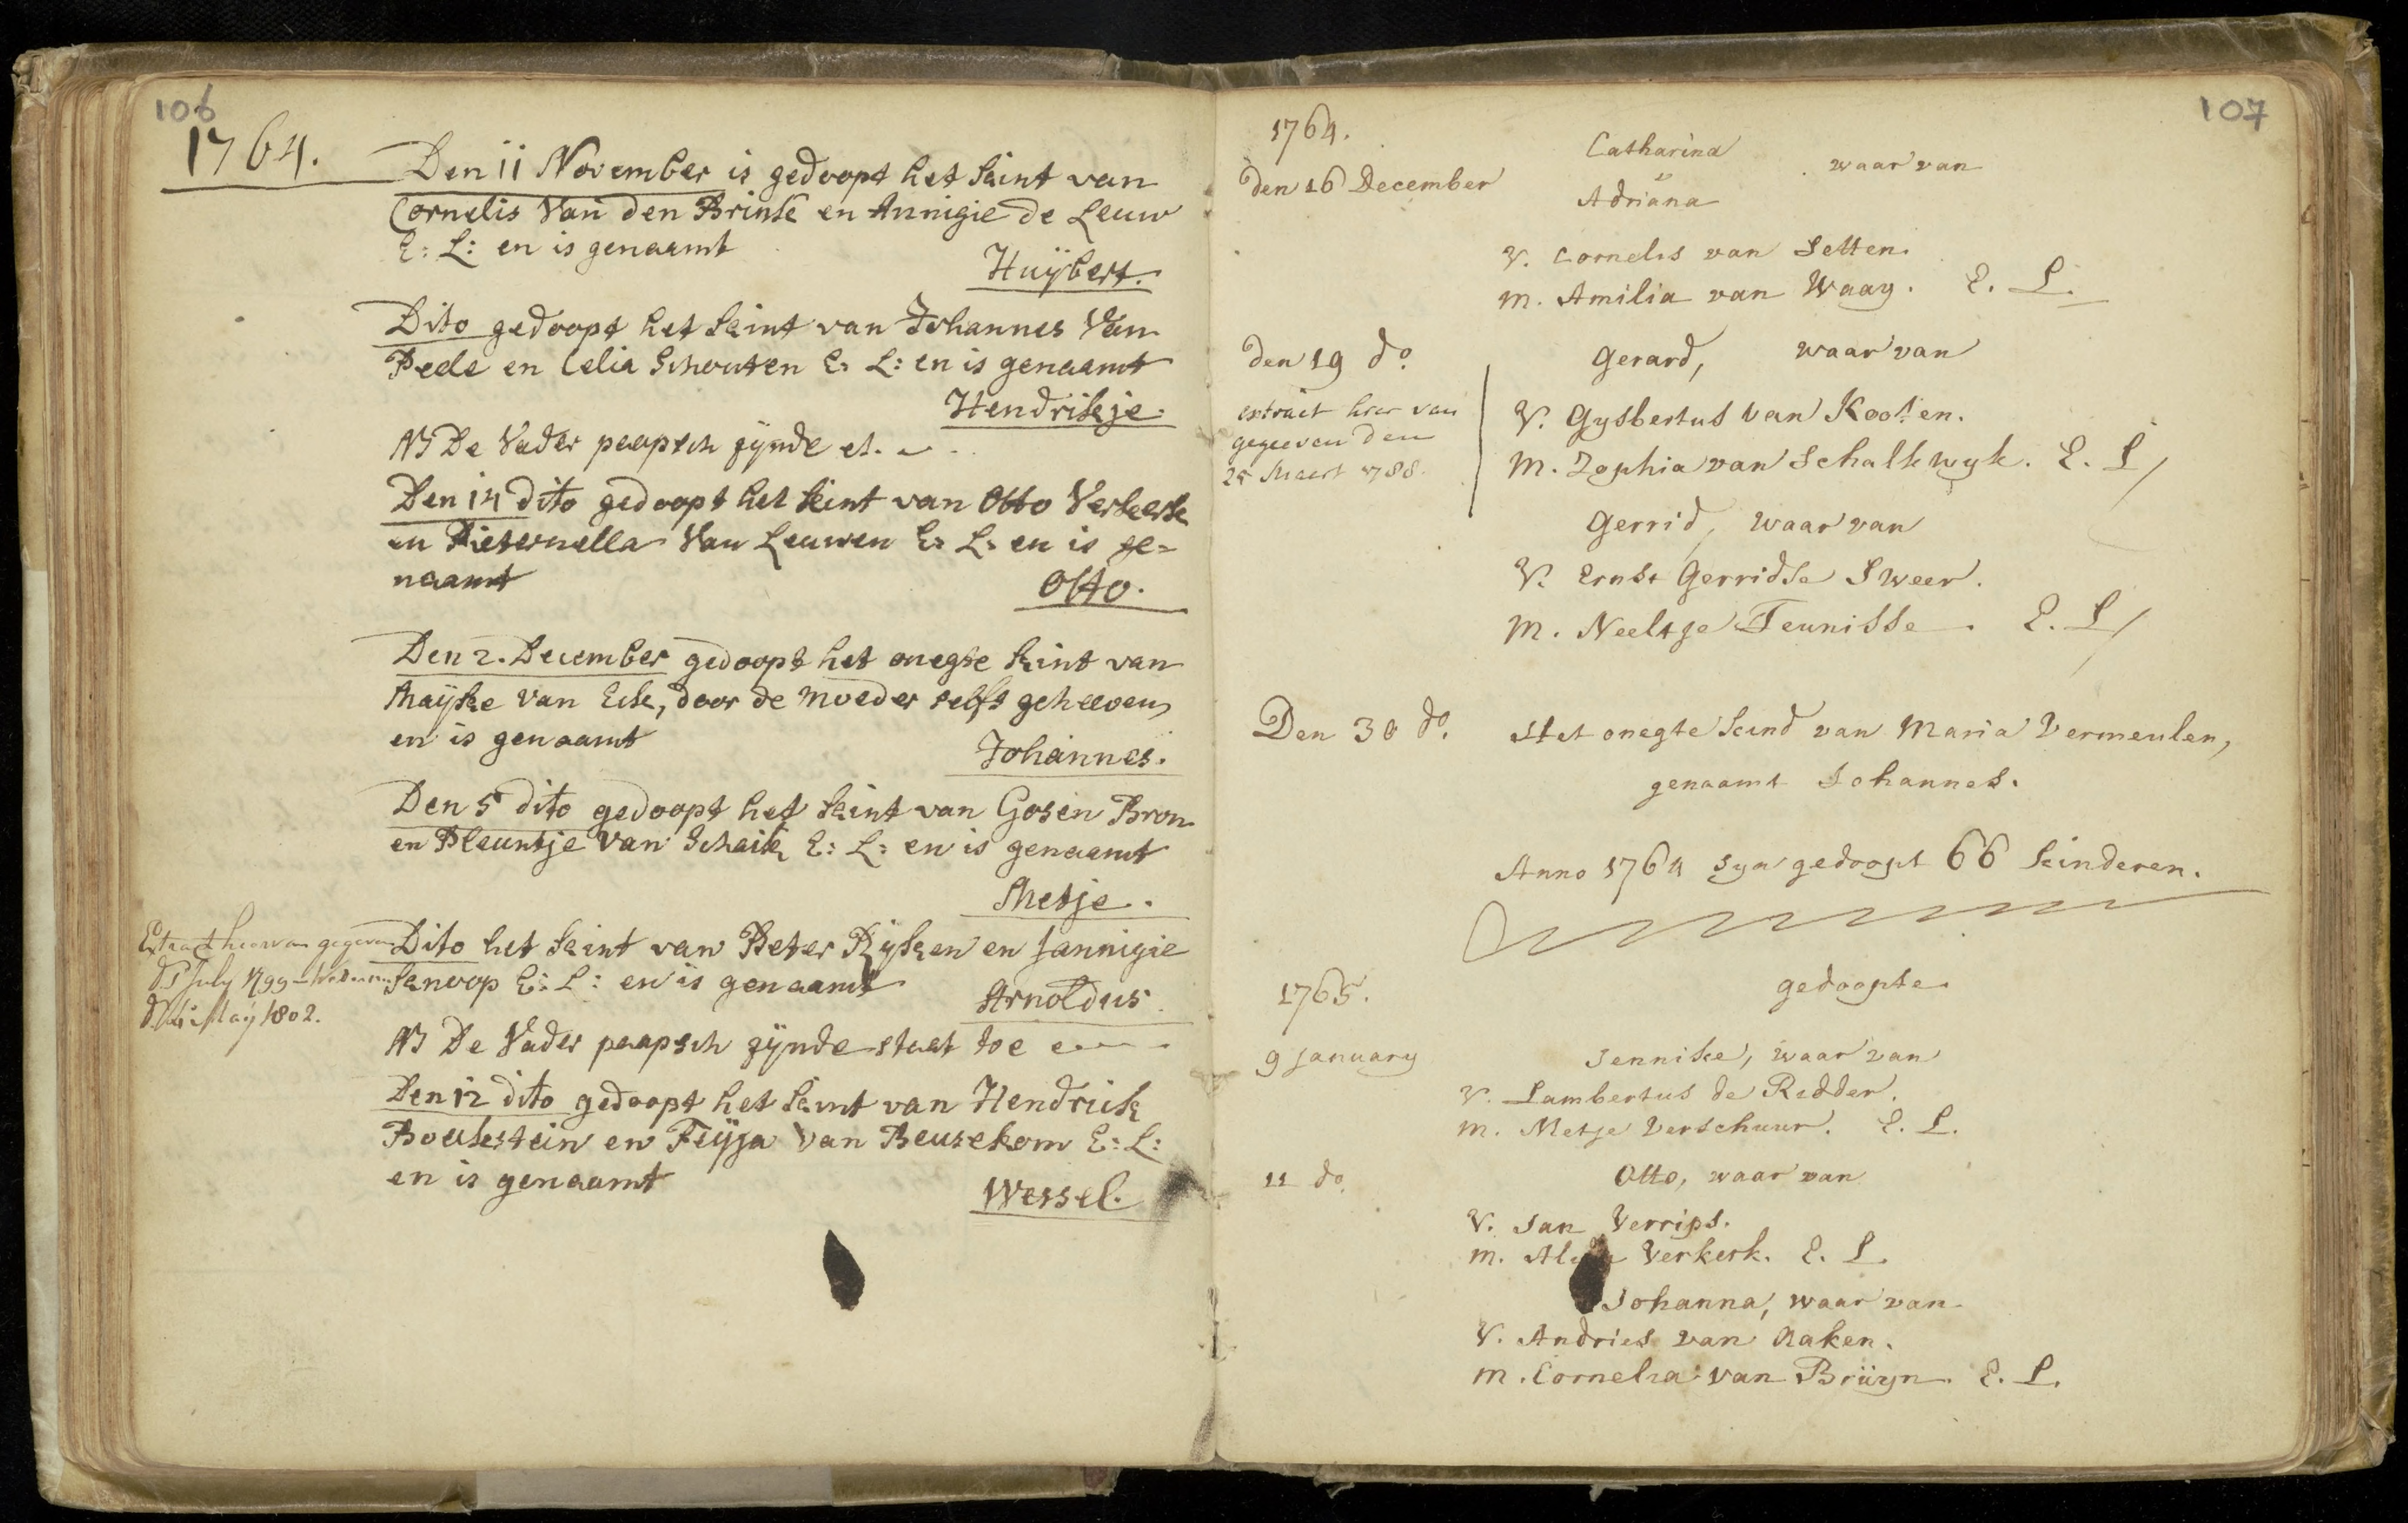 106
1764.
Den 11 November is gedoopt het kint van
Cornelis Van den Brink en Annigie de Leeuw
E: L: en is genaamt
Huÿbert.
Dito gedoopt het kint van Johannes Van
Rede en Celia Schouten E: L: en is genaamt
Hendrikje.
NB De Vader paapsch zÿnde et.
Den 14 dito gedoopt het kint van Otto Verkerk
en Pieternella Van Leeuwen E: L: en is ge=
naamt
Otto.
Den 2. December gedoopt het onegte kint van
Maÿke van Eck, door de moeder selfs geheeven,
en is genaamt
Johannes.
Den 5 dito gedoopt het kint van Gosen Bron
en Pleuntje Van Schaik E: L: en is genaamt
Metje.
Extract hiervan gegeven
July 1799
May 1802.
Dito het kint van Peter Rÿken en Jannigie
Kanoop E: L: en is genaamt
Arnoldus.
NB De Vader paapsch zÿnde staet toe
Den 12 dito gedoopt het kint van Hendrick
Boukestein en Feÿja Van Beusekom E: L:
en is genaamt
Wessel.
107
1764.
den 16 December
Catharina
Adriana
waar van
V. Cornelis van Setten.
M. Amilia van Waay. E. L.
den 19 do.
Gerard, waar van
extract hier van
gegeeven den
25 Maert 1788.
V. Gysbertus van Kooten.
M. Zophia van Schalkwyk. E. L
Gerrid, waar van
V. Ernst Gerridse Sweer.
M. Neeltje Teunisse. E. L
Den 30 do.
Het onegte kind van Maria Vermeulen,
genaamt Johannes.
Anno 1764 syn gedoopt 66 kinderen.
gedoopte
1765.
9 January
Jennike, waar van
V. Lambertus de Ridder.
M. Metje Verschuur. E. L.
11 do.
Otto, waar van
V. Jan Verrips.
M. Verkerk. E. L.
Johanna, waar van
V. Andries van Aaken.
M. Cornelia van Brüyn. E. L.